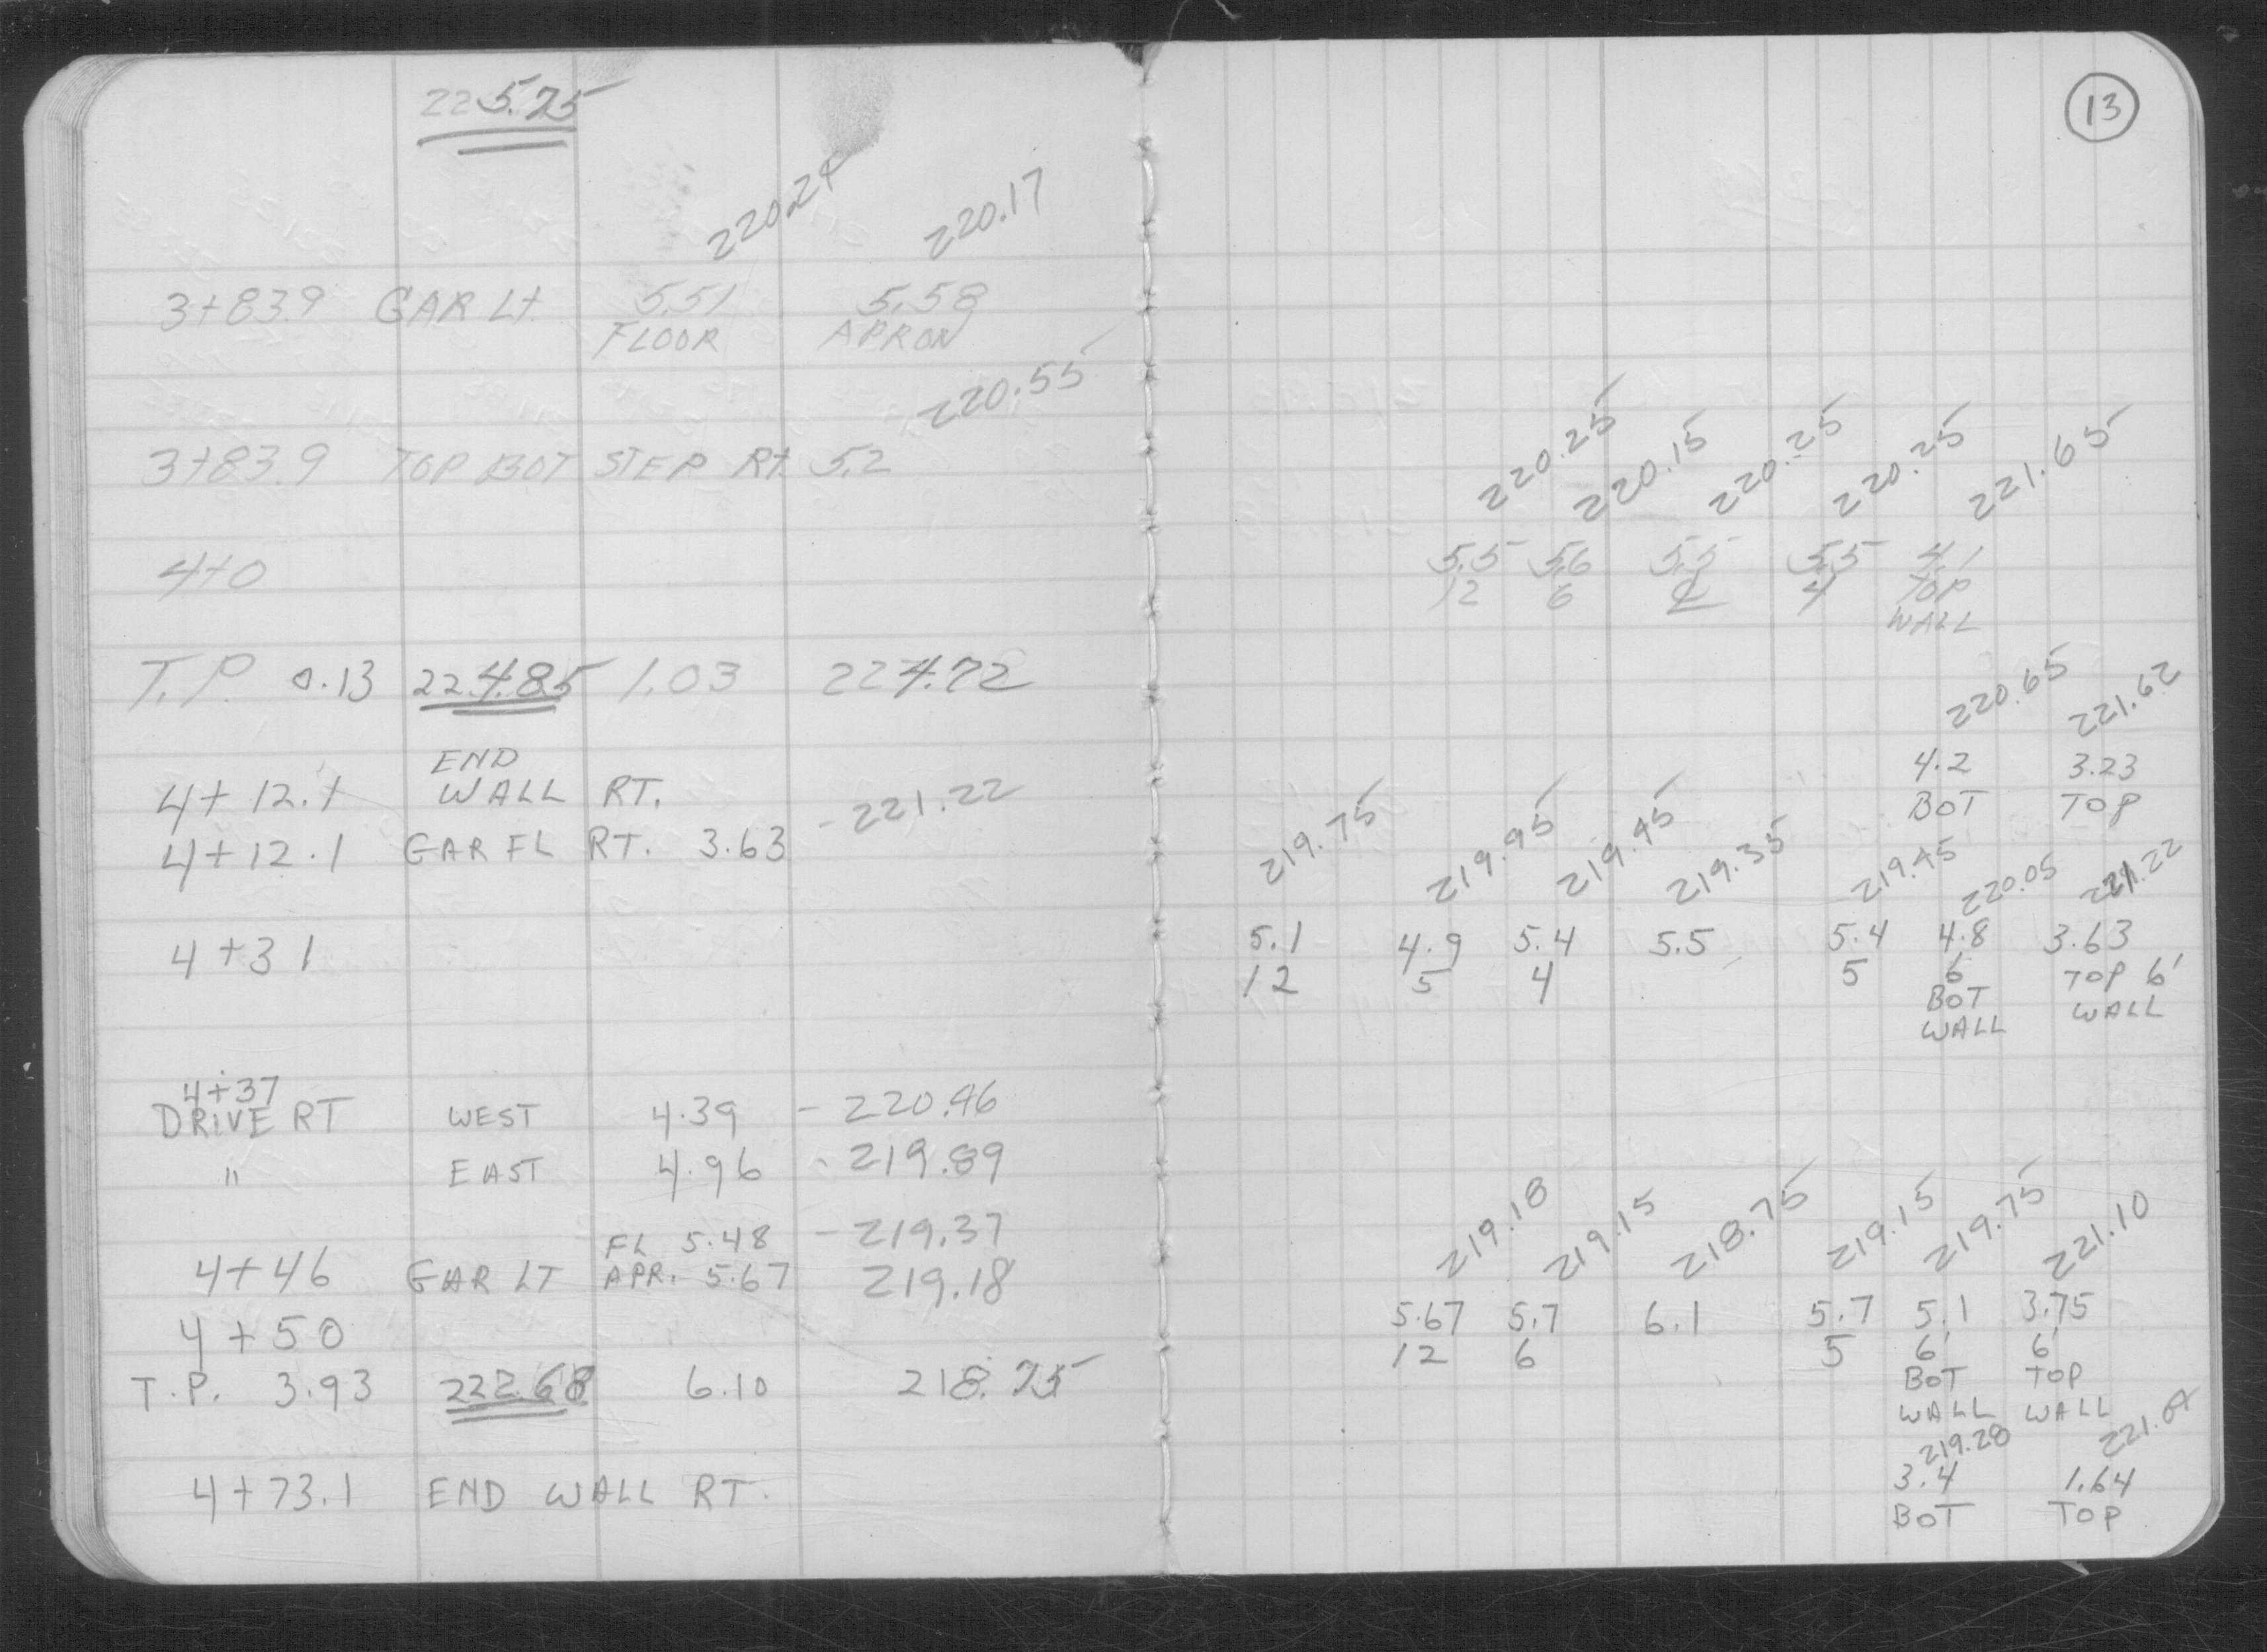 225.75
220.24 220.17
3+83.9 GAR Lt. 5.51 5.58
FLOOR APRON
220.55
3+83.9 TOP BOT STEP Rt 5.2
4+0
T.P. 0.13 224.85 1.03 224.72
END
4+12.1 WALL RT.
4+12.1 GAR FL RT. 3.63 - 221.22
4+31
4+37
DRIVE RT WEST 4.39 - 220.46
" EAST 4.96 - 219.89
FL 5.48 - 219.37
4+46 GAR LT APR. 5.67 219.18
4+50
T.P. 3.93 222.68 6.10 218.75
4+73.1 END WALL RT.
13
220.25 220.15 220.25 220.25 221.65
5.5 5.6 5.5 5.5 4.1
12 6 ℄ 4 TOP
WALL
220.65 221.62
4.2 3.23
BOT TOP
219.75 219.95 219.45 219.35 219.45 220.05 221.22
5.1 4.9 5.4 5.5 5.4 4.8 3.63
12 5 4 5 6 TOP 6'
BOT WALL
WALL
219.18 219.15 218.75 219.15 219.75 221.10
5.67 5.7 6.1 5.7 5.1 3.75
12 6 5 6' 6'
BOT TOP
WALL WALL
219.28 221.04
3.4 1.64
BOT TOP